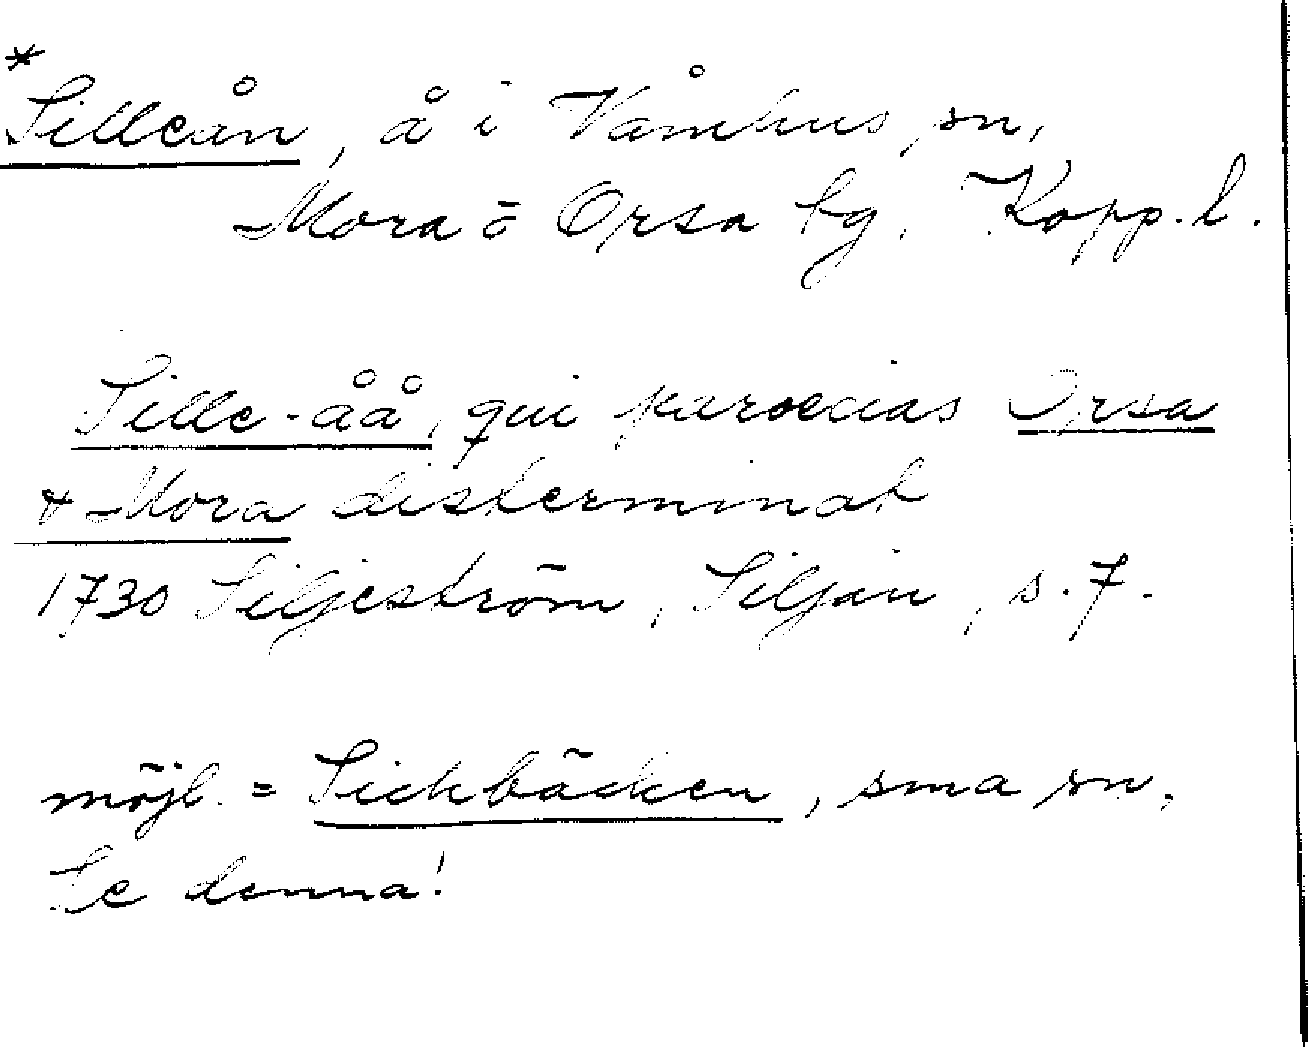 *Silleån, å i Våmhus sn,
Mora o Orsa tg. Kopp. l.
Sille-åå, qui paroecias Orsa
& Mora disterminat
1730 Siljeström, Siljan, s. 7.
möjl. = Sickbäcken, sma sn.
Se denna!